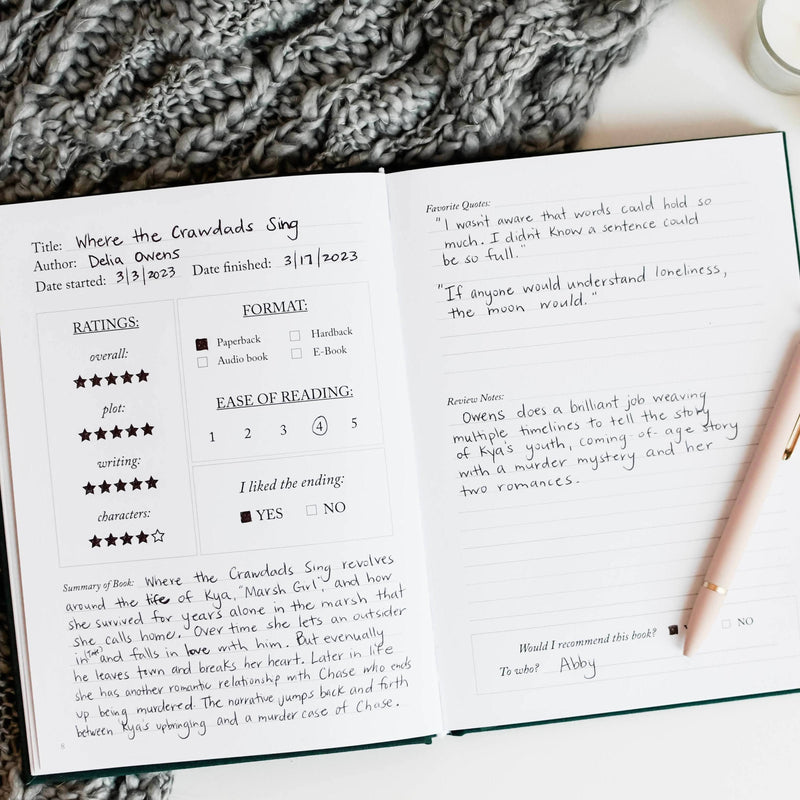 Title: Where the Crawdads Sing
Author: Delia Owens
Date started: 3/3/2023 Date finished: 3/17/2023
RATINGS:
overall:
plot:
writing:
characters:
FORMAT:
Paperback Hardback
Audio book E-Book
EASE OF READING:
1 2 3 4 5
I liked the ending:
YES NO
Summary of Book: Where the Crawdads Sing revolves
around the life of Kya, "Marsh Girl", and how
she survived for years alone in the marsh that
she calls home. Over time she lets an outsider
in (Tate) and falls in love with him. But evenually
he leaves town and breaks her heart. Later in life
she has another romantic relationship with Chase who ends
up being murdered. The narrative jumps back and forth
between Kya's upbringing and a murder case of Chase.
8
Favorite Quotes:
"I wasn't aware that words could hold so
much. I didn't know a sentence could
be so full."
"If anyone would understand loneliness,
the moon would."
Review Notes:
Owens does a brilliant job weaving
multiple timelines to tell the story
of Kya's youth, coming-of-age story
with a murder mystery and her
two romances.
Would I recommend this book? Y NO
To who? Abby